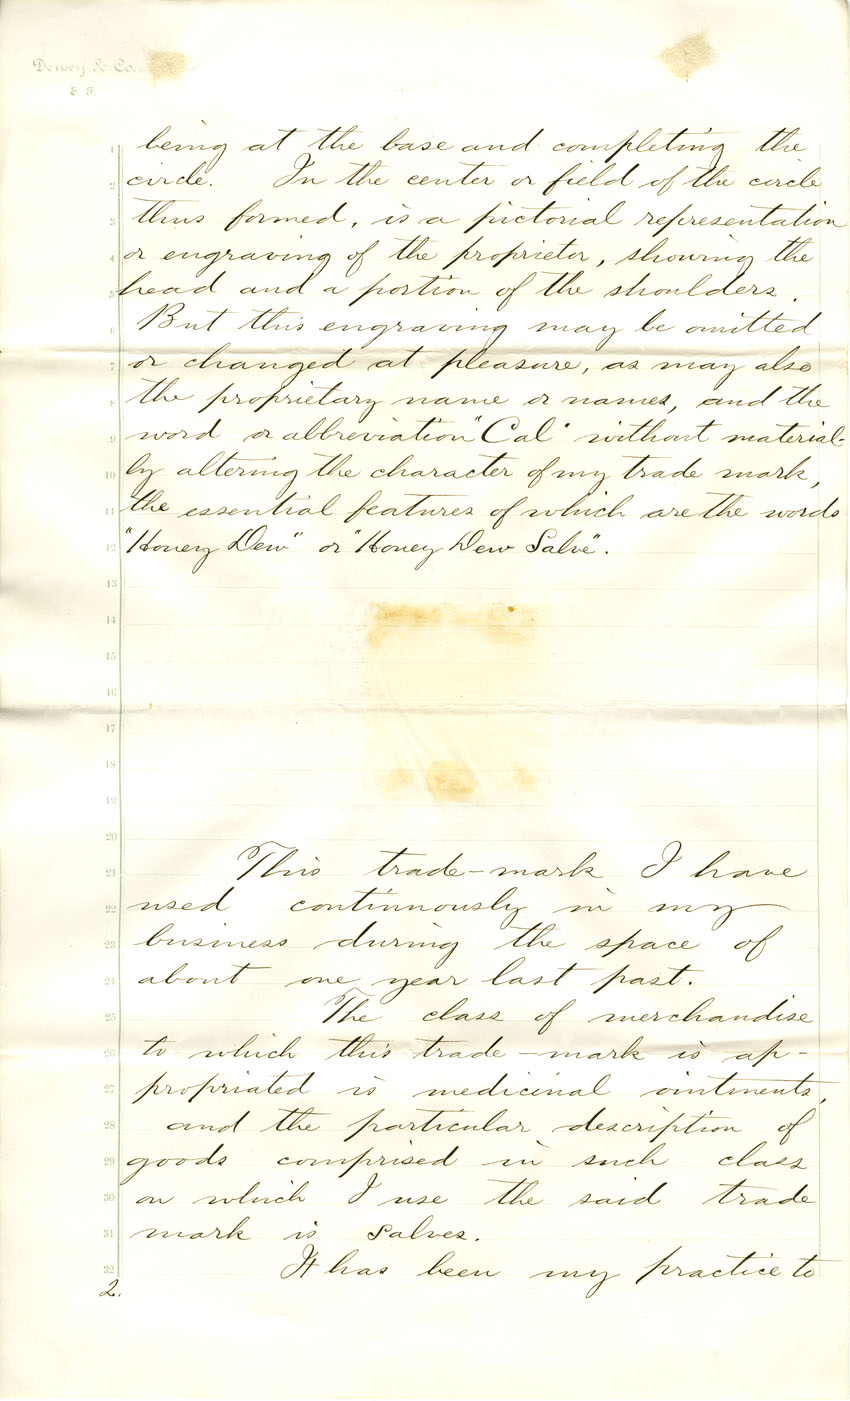 Dewey & Co.
S. F.
1 being at the base and completing the
2 circle. In the center or field of the circle
3 thus formed, is a pictorial representation
4 or engraving of the proprietor, showing the
5 head and a portion of the shoulders.
6 But this engraving may be omitted
7 or changed at pleasure, as may also
8 the proprietary name or names, and the
9 word or abbreviation "Cal" without material-
10 ly altering the character of my trade mark,
11 the essential features of which are the words
12 "Honey Dew" or "Honey Dew Salve".
13
14
15
16
17
18
19
20
21 This trade-mark I have
22 used continuously in my
23 business during the space of
24 about one year last past.
25 The class of merchandise
26 to which this trade-mark is ap-
27 propriated is medicinal ointments,
28 and the particular description of
29 goods comprised in such class
30 on which I use the said trade
31 mark is salves.
32 It has been my practice to
2.